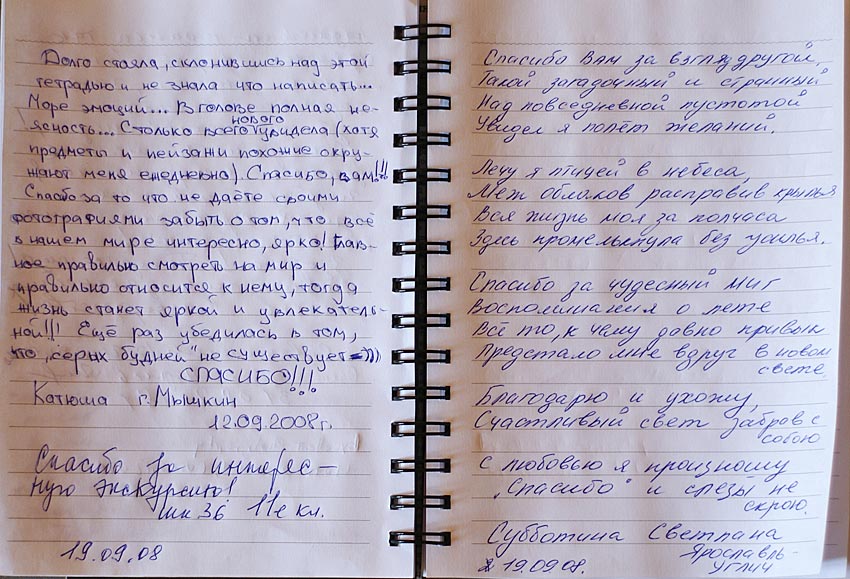 Долго стояла, склонившись над этой
тетрадью и не знала что написать...
Море эмоций... В голове полная не-
ясность... Столько всего нового увидела (хотя
предметы и пейзажи похожие окру-
жают меня ежедневно). Спасибо, вам!!!
Спасбо за то что не даёте своими
фотографиями забыть о том, что всё
в нашем мире интересно, ярко! Глав-
ное правильно смотреть на мир и
правильно относится к нему, тогда
жизнь станет яркой и увлекатель-
ной!!! Ещё раз убедилась в том,
что „серых будней" не существует =)))
СПАСИБО!!!
Катюша г. Мышкин
12.09.2008г.
Спасибо за интерес-
ную экскурсию!
шк 36 11е кл.
19.09.08
Спасибо Вам за взгляд другой,
Такой загадочный и странный
Над повседневной пустотой
Увидел я полёт желаний.
Лечу я птицей в небеса,
Меж облаков расправив крылья
Вся жизнь моя за полчаса
Здесь промелькнула без усилья.
Спасибо за чудесный миг
Воспоминания о лете
Всё то, к чему давно привык
Предстало мне вдруг в новом
свете.
Благодарю и ухожу,
Счастливый свет забрав с
собою
С любовью я произношу
„Спасибо" и слезы не
скрою.
Субботина Светлана
Ярославль-
Углич
19.09.08.